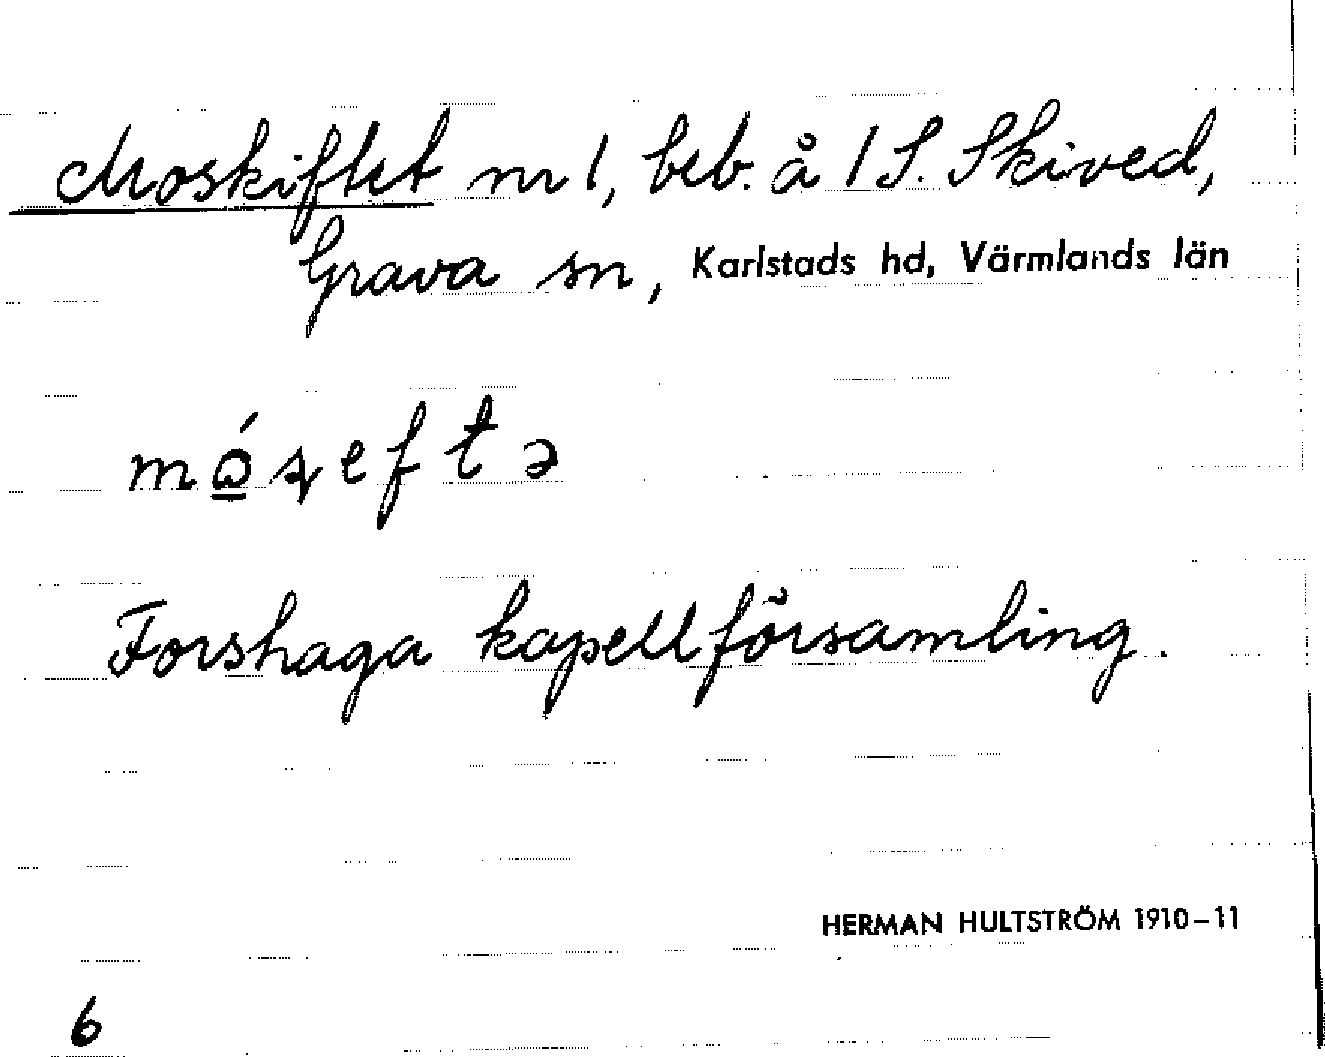 Moskiftet nr 1, beb. å 1 S. Skived,
Grava sn, Karlstads hd, Värmlands län
Forshaga kapellförsamling.
HERMAN HULTSTRÖM 1910-11
6